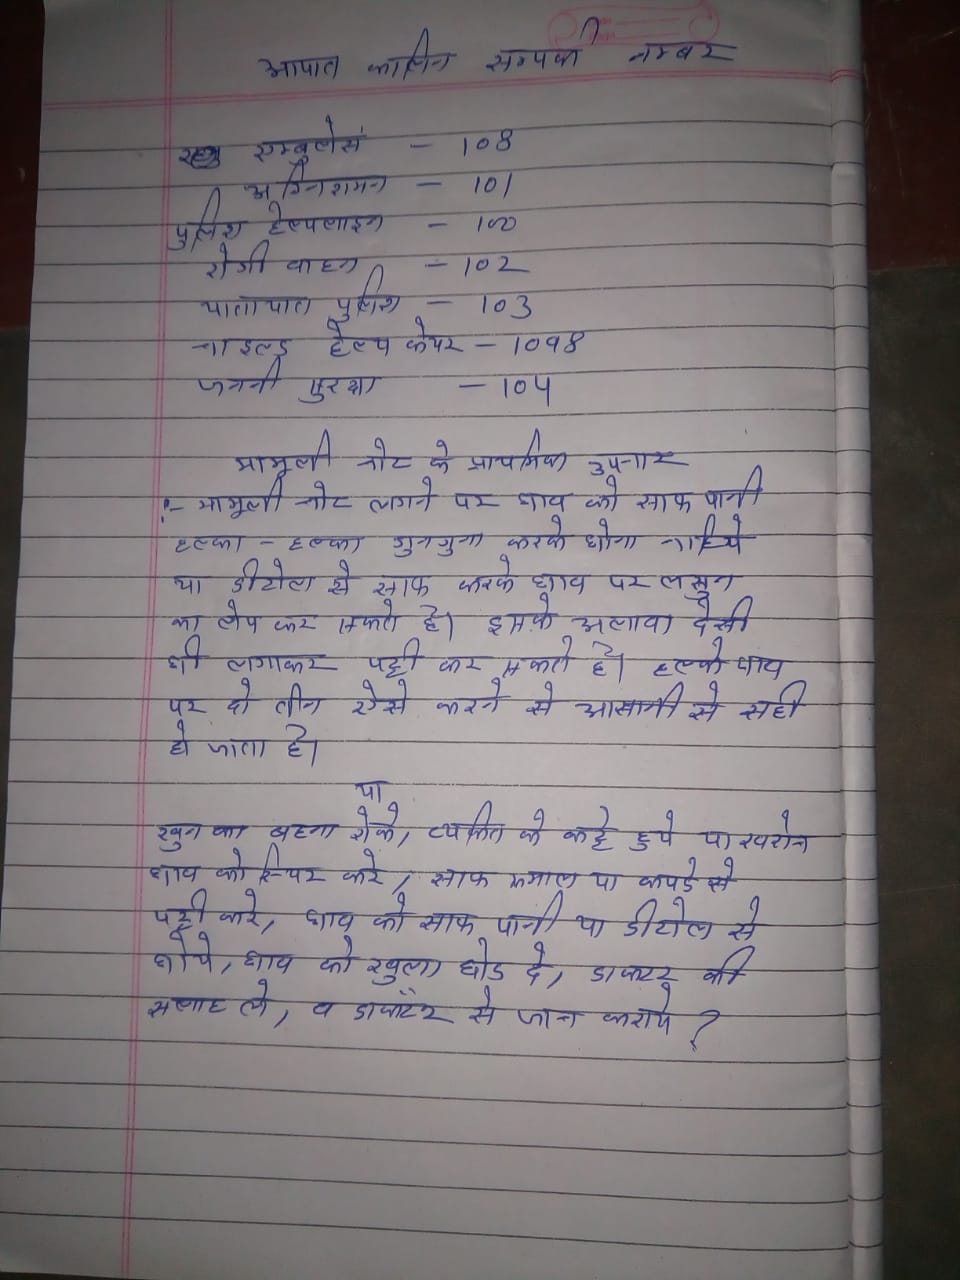 आपात कालिन सम्पर्क नम्बर
एम्बुलेसं - 108
अग्निशमन - 101
पुलिश हेल्पलाइन - 100
रोगी वाहन - 102
यातायात पुलिश - 103
चाइल्ड हेल्प केयर - 1098
जननी सुरक्षा - 104
मामूली चोट के प्राथमिक उपचार
:- मामूली चोट लगने पर घाव को साफ पानी
हल्का - हल्का गुनगुना करके धोना चाहिये
या डीटोल से साफ करके घाव पर लसुन
का लेप कर सकते है। इसके अलावा देसी
घी लगाकर पट्टी कर सकते है। हल्के घाव
पर दो तीन ऐसे करने से आसानी से सही
हो जाता है।
या
खुन का बहना रोके, व्यक्ति के कट्टे हुये या खरोच
घाव को स्थिर करे, साफ रूमाल या कपडे से
पट्टी करे, घाव को साफ पानी या डीटोल से
धोये, घाव को खुला छोड दे, डाक्टर की
सलाह ले, व डाक्टॅर से जाच कराये